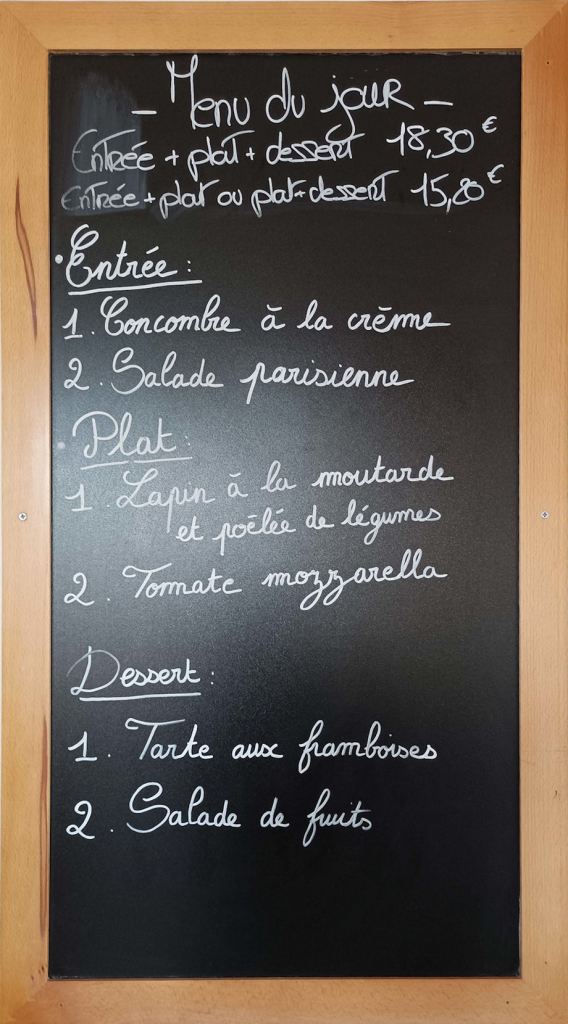 - Menu du jour -
Entrée + plat + dessert 18,30€
Entrée + plat ou plat + dessert 15,80€
• Entrée :
1. Concombre à la crème
2. Salade parisienne
• Plat :
1. Lapin à la moutarde
et poêlée de légumes
2. Tomate mozzarella
Dessert :
1. Tarte aux framboises
2. Salade de fruits